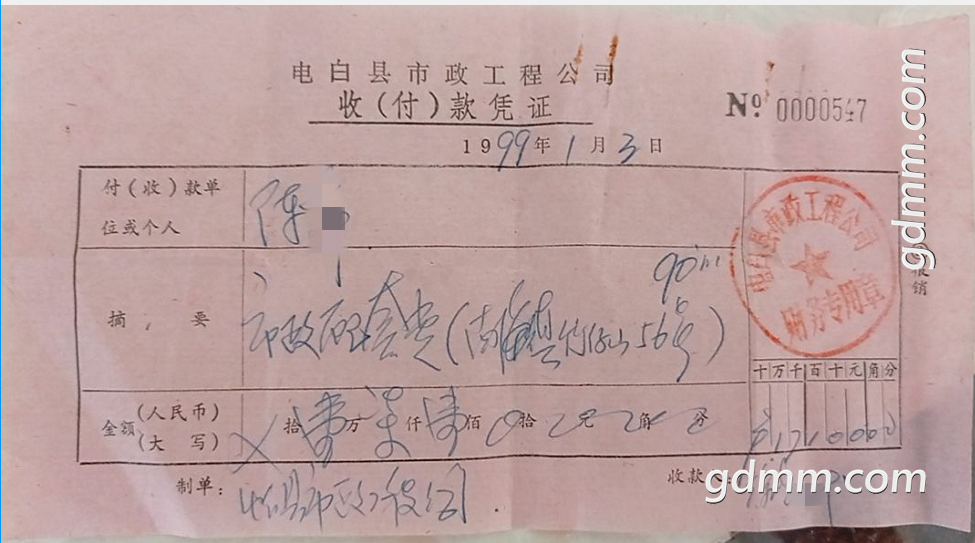 电白县市政工程公司
收(付)款凭证
Nº 0000547
1999年1月3日
付(收)款单
位或个人
陈
电白县市政工程公司
财务专用章
报销
摘,要
90
市政配套费(南海镇竹仔山56号)
十万千百十元角分
金额(人民币)
(大写)
拾壹万柒仟壹佰 拾 元 角 分
制单:
电白县市政工程公司
收款人
gdmm.com
gdmm.com